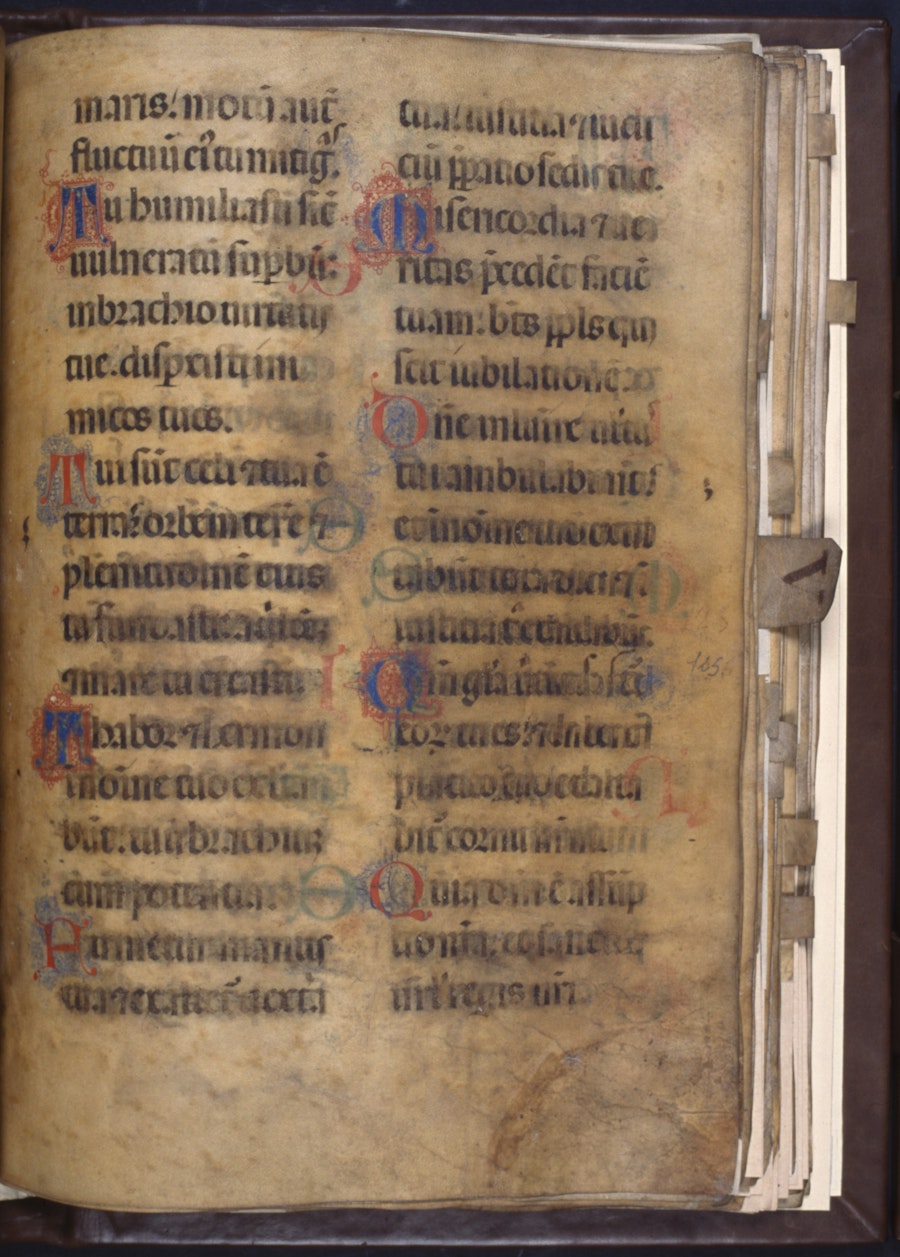 maris: motū aut̄
fluctuū eiꝰ tu mitigas.
Tu humiliasti sic̄
uulneratū suꝑbū:
in brachio uirtutis
tue. disꝑsisti ini
micos tuos.
Tui sūt celi ⁊ tua ē
terra: orbem terre ⁊
plenitudinē eius
tu fundasti
⁊ mare tu creasti
Thabor ⁊ hermon
in noīne tuo exultā
būt: tuū brachiū
cum potentia.
Firmetur manus
tua ⁊ exaltet̄ dext̄a
tua: iustitia ⁊ iudi
ciū p̄paratio sedis tue.
Misericordia ⁊ ue
ritas p̄cedēt faciē
tuam: bt̄s ppl̄s qui
scit iubilationē
Dn̄e in lumīe uultꝰ
tui ambulabunt:
et in noīne tuo exul
tabūt tota die ⁊ ī
iusticia
Qm̄ gl̄a uirtutis
eoꝝ tu es: ⁊ in bene
placito tuo exalta
bit̄ cornu nostrum
Quia domī ē assūp
tio nr̄a: et sancti
isrl̄ regis nr̄i